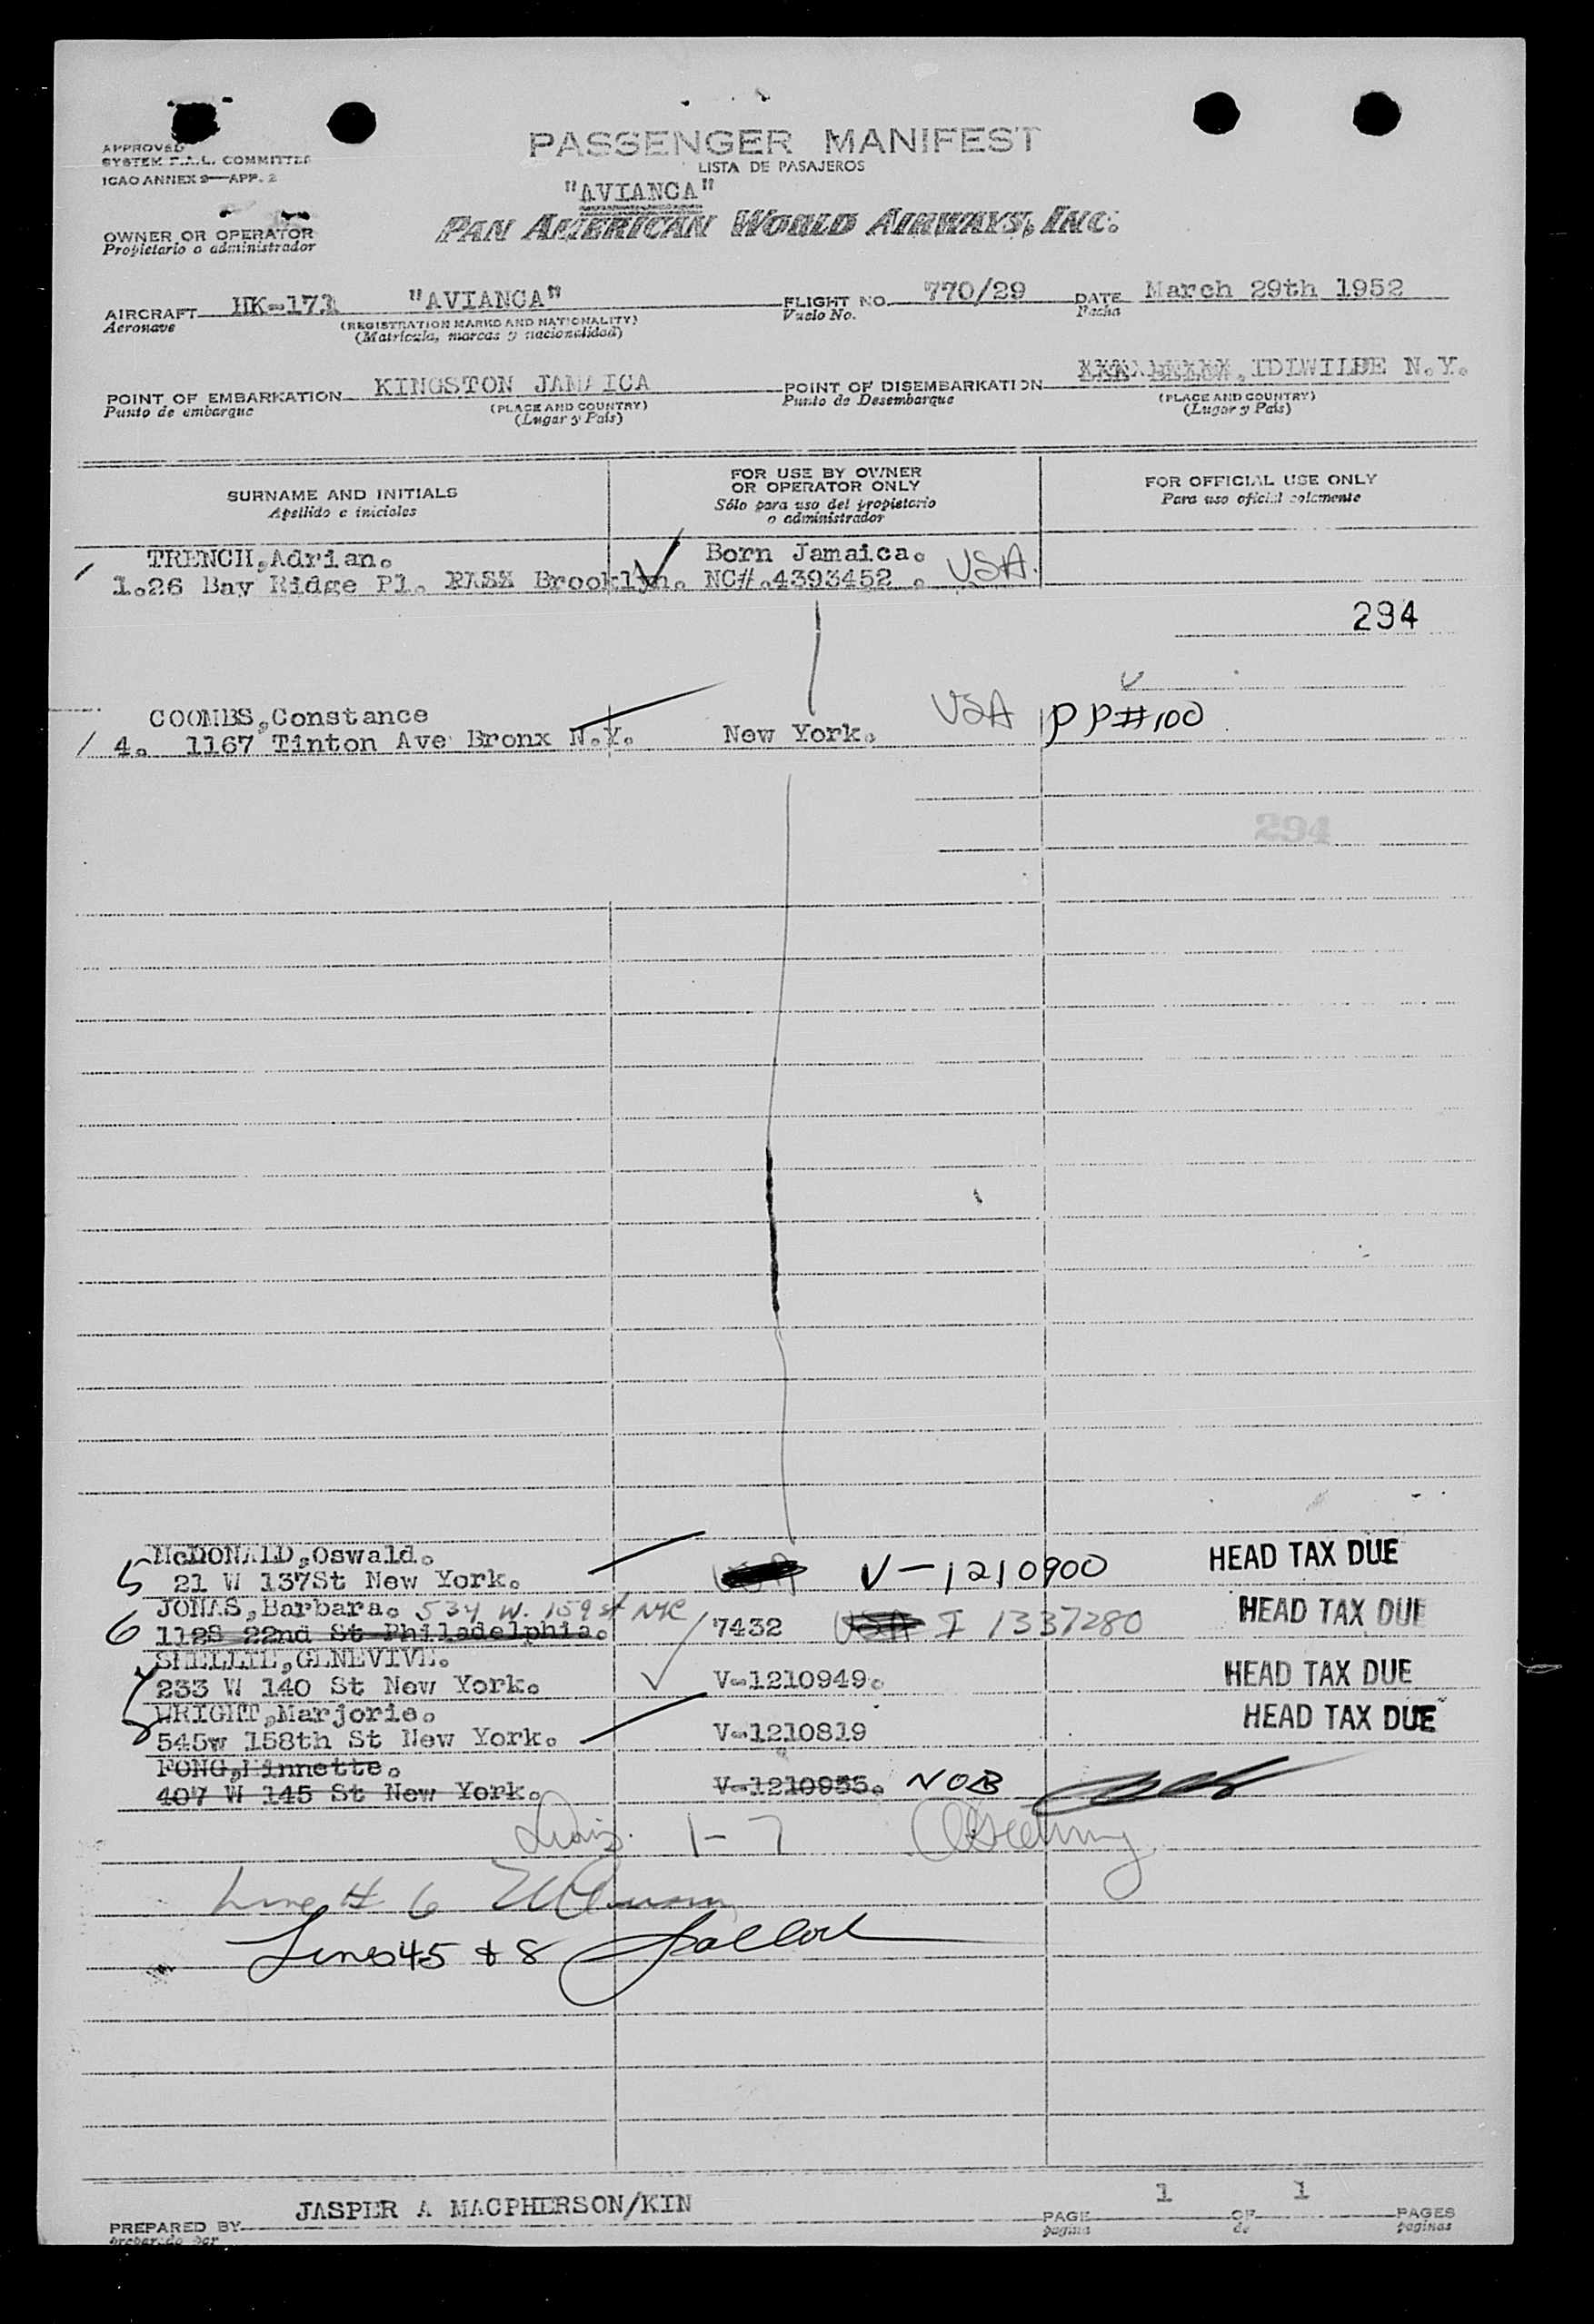 APPROVED
SYSTEM F.A.L. COMMITTEE
ICAO ANNEX 9—APP. 2
PASSENGER MANIFEST
LISTA DE PASAJEROS
"AVIANCA"
PAN AMERICAN WORLD AIRWAYS, INC.
OWNER OR OPERATOR
Propietario o administrador
AIRCRAFT HK-171 "AVIANCA" FLIGHT NO. 770/29 DATE March 29th 1952
Aeronave (REGISTRATION MARKS AND NATIONALITY) Vuelo No. Fecha
(Matrícula, marcas y nacionalidad)
POINT OF EMBARKATION KINGSTON JAMAICA POINT OF DISEMBARKATION IDIWILDE N.Y.
Punto de embarque (PLACE AND COUNTRY) Punto de Desembarque (PLACE AND COUNTRY)
(Lugar y País) (Lugar y País)
SURNAME AND INITIALS FOR USE BY OWNER OR OPERATOR ONLY FOR OFFICIAL USE ONLY
Apellido e iniciales Sólo para uso del propietario o administrador Para uso oficial solamente
TRENCH,Adrian. Born Jamaica.
1.26 Bay Ridge Pl. Brooklyn. NC#.4393452 . USA.
294
COOMBS,Constance USA PP#100
4. 1167 Tinton Ave Bronx N.Y. New York.
294
McDONALD,Oswald. HEAD TAX DUE
5 21 W 137St New York. V-1210900
JONAS,Barbara. 534 W. 159 st NYC HEAD TAX DUE
6 1128 22nd St Philadelphia. 7432 USA I 1337280
SHELLIE,GENEVIVE. HEAD TAX DUE
7 233 W 140 St New York. V-1210949.
WRIGHT,Marjorie. HEAD TAX DUE
8 545w 158th St New York. V-1210819
FONG,Minnette.
407 W 145 St New York. V-1210955. NOB
1-7
Line # 6
Lines 45 & 8
PREPARED BY JASPER A MACPHERSON/KIN PAGE 1 OF 1 PAGES
preparado por pagina de paginas